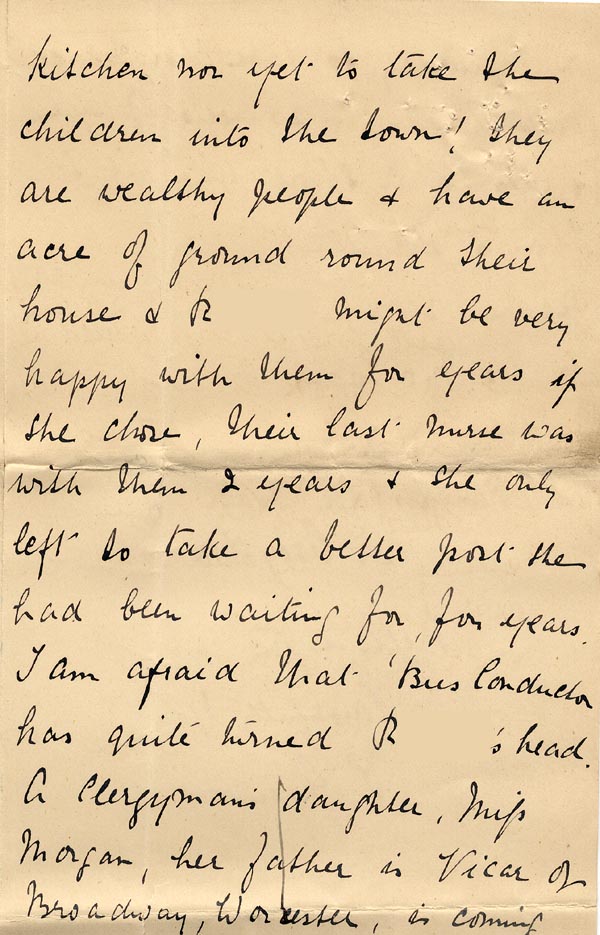 kitchen nor yet to take the
children into the town! they
are wealthy people & have an
acre of ground round their
house & R might be very
happy with them for years if
she chose, their last nurse was
with them 2 years & she only
left to take a better post she
had been waiting for, for years.
I am afraid that 'Bus Conductor
has quite turned R 's head.
A Clergyman's daughter, Miss
Morgan, her father is Vicar of
Broadway, Worcester, is coming